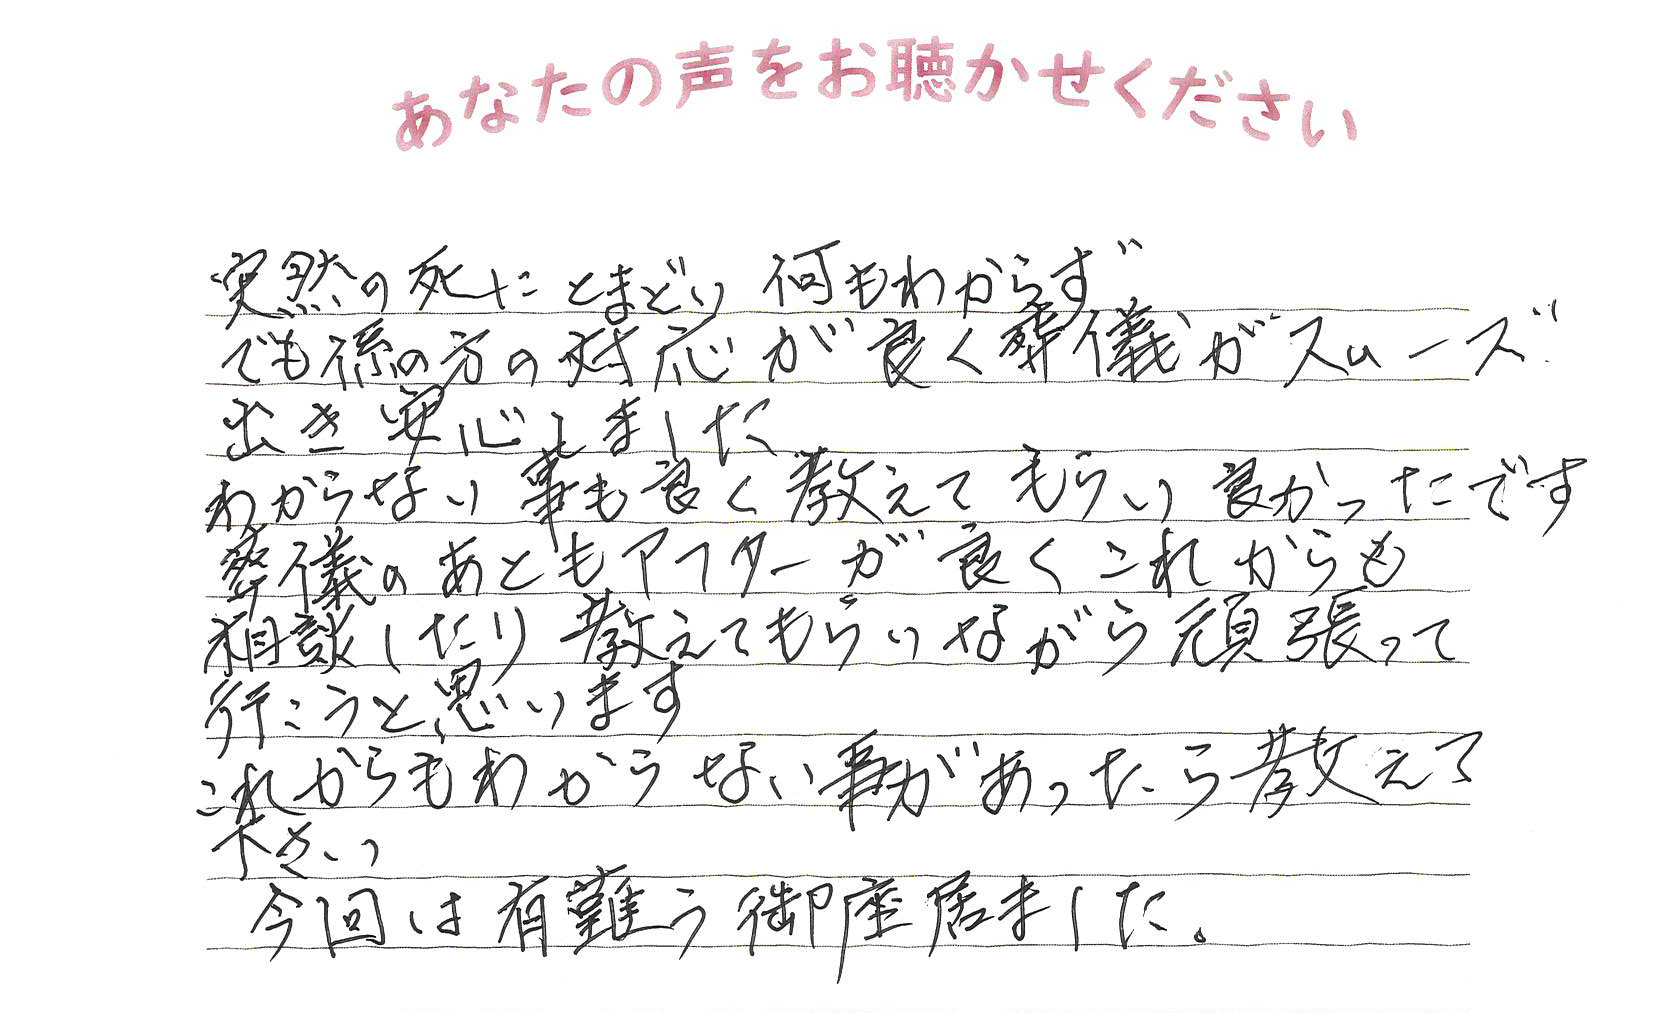 あなたの声をお聴かせください
突然の死にとまどい 何もわからず
でも係の方の対応が良く葬儀がスムーズ
出き安心しました
わからない事も良く教えてもらい良かったです
葬儀のあともアフターが良くこれからも
相談したり教えてもらいながら頑張って
行こうと思います
これからもわからない事があったら教えて
下さい
今回は有難う御座居ました。